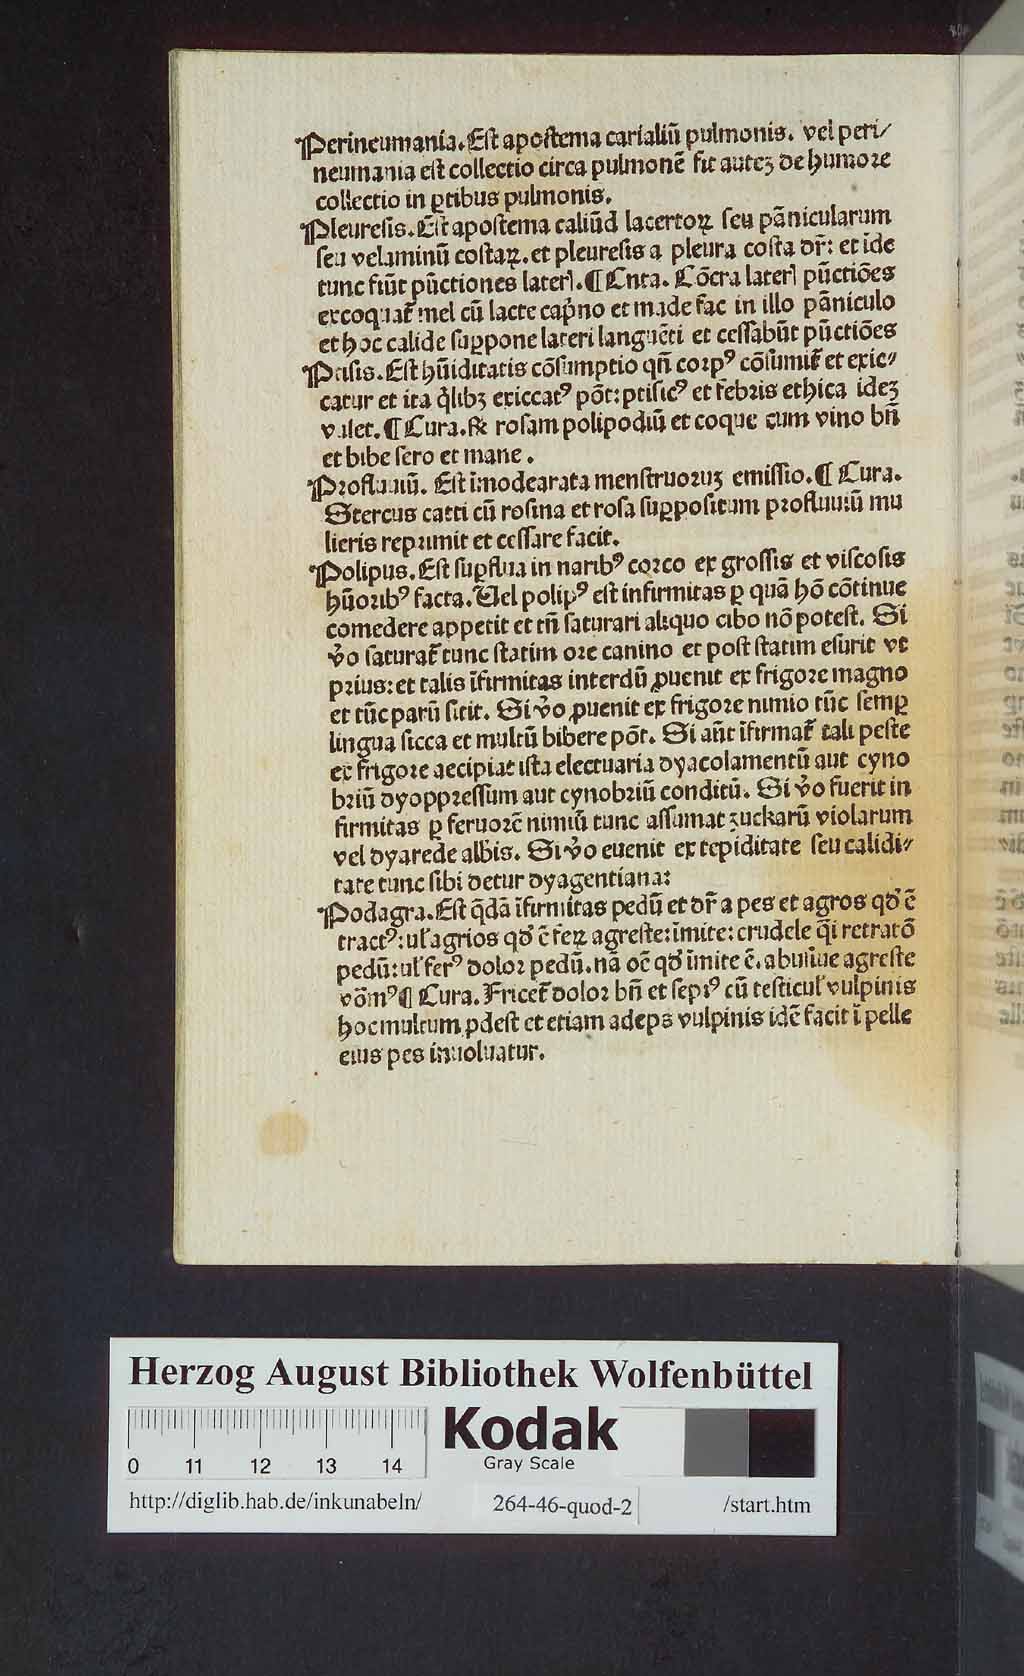 Perineumania. Est apostema carialiū pulmonis. vel peri/
neumania est collectio circa pulmonē fit autēꝫ de humore
collectio in ꝑtibus pulmonis.
Pleuresis. Est apostema caliūd lacertoꝝ seu pāniculaꝛum
seu velaminū costaꝝ. et pleuresis a pleura costa dr̄: et īde
tunc fiūt pūctiones laterꝭ. ¶ Cura. Cōtra laterꝭ pūctiōes
excoquat̄ mel cū lacte capͥno et made fac in illo pāniculo
et hoc calide suppone lateri languēti et cessabūt pūctiōes
Ptisis. Est hūiditatis cōsumptio qn̄ corpꝰ cōsumit̄ et exic⸗
catur et ita qͥlibꝫ exiccatꝰ pōt: ptisicꝰ et febris ethica ideꝫ
valet. ¶ Cura. ꝶ rosam polipodiū et coque cum vino bn̄
et bibe sero et mane.
Profluuiū. Est īmodearata menstruoruꝫ emissio. ¶ Cura.
Stercus catti cū rosina et rosa suꝑpositum profluuiū mu
lieris reprimit et cessare facit.
Polipus. Est suꝑflua in naribꝰ corco ex grossis et viscosis
hūoribꝰ facta. Uel polipꝰ est infirmitas ꝑ quā hō cōtinue
comedere appetit et tn̄ saturari aliquo cibo nō potest. Si
v̄o saturat̄ tunc statim ore canino et post statim esurit vt
prius: et talis īfirmitas interdū ꝓuenit ex frigore magno
et tūc parū sitit. Si v̄o ꝓuenit ex frigore nimio tūc semꝑ
lingua sicca et multū bibere pōt. Si aūt īfirmat̄ tali peste
ex frigore accipiat ista electuaria dyacolamentū aut cyno
briū dyoppressum aut cynobriū conditū. Si v̄o fuerit in
firmitas ꝑ feruorē nimiū tunc assumat zuckarū violarum
vel dyarede albis. Si v̄o euenit ex tepiditate seu calidi⸗
tate tunc sibi detur dyagentiana:
Podagra. Est q̄dā īfirmitas pedū et dr̄ a pes et agros qđ ē
tractꝰ: ul̓ agrios qđ ē feꝝ agreste: īmite: crudele q̄i retratō
pedū: ul̓ ferꝰ dolor pedū. nā oē qđ īmite ē. abusiue agreste
vōmꝰ ¶ Cura. Fricet̄ dolor bn̄ et sepiꝰ cū testicul̓ vulpinis
hoc multum ꝓdest et etiam adeps vulpinis idē facit ī pelle
eius pes inuoluatur.
Herzog August Bibliothek Wolfenbüttel
Kodak
Gray Scale
0 11 12 13 14
http://diglib.hab.de/inkunabeln/ 264-46-quod-2 /start.htm